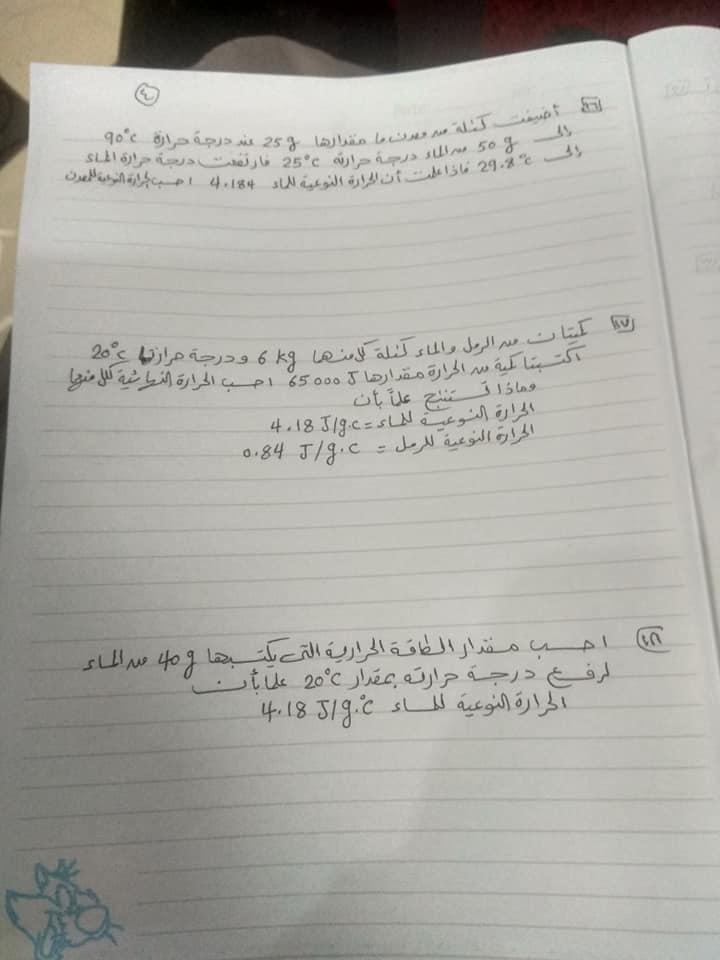 ٤
١٦ أضيفت كتلة من معدن ما مقدارها 25g عند درجة حرارة 90°c
إلى 50 g من الماء درجة حرارته 25°c فارتفعت درجة حرارة الماء
إلى 29.8°c فاذا علمت أن الحرارة النوعية للماء 4.184 احسب الحرارة النوعية للمعدن
١٧ كميتان من الرمل والماء كتلة كل منها 6 kg ودرجة حرارتها 20°c
اكتسبتا كمية من الحرارة مقدارها 65000 J احسب الحرارة النهائية لكل منها
وماذا تستنتج علماً بأن
الحرارة النوعية للماء = 4.18 J/g.c
الحرارة النوعية للرمل = 0.84 J/g.c
١٨ احسب مقدار الطاقة الحرارية التى يكتسبها 40g من الماء
لرفع درجة حرارته بمقدار 20°c علما بأن
الحرارة النوعية للماء 4.18 J/g.°c